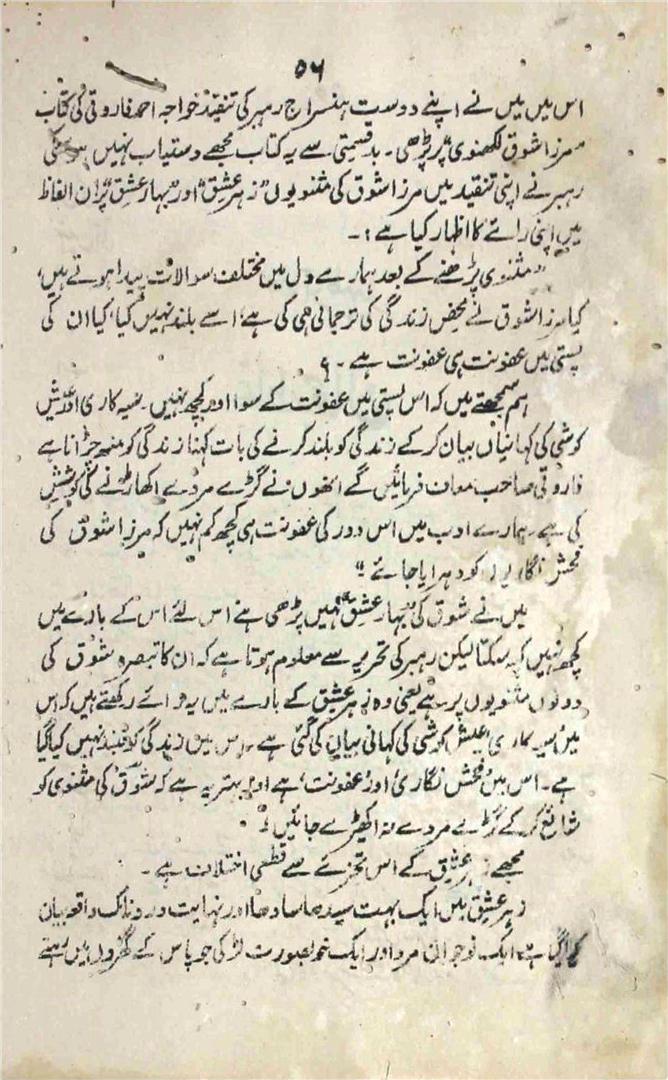 ۵۶
اس میں میں نے اپنے دوست ہنسراج رہبر کی تنقید خواجہ احمد فاروقی کی کتاب
"مرزا شوق لکھنوی" پر پڑھی۔ بدقسمتی سے یہ کتاب مجھے دستیاب نہیں ہو سکی
رہبر نے اپنی تنقید میں مرزا شوق کی مثنویوں "زہر عشق" اور "بہار عشق" پر ان الفاظ
میں اپنی رائے کا اظہار کیا ہے :۔
"مثنوی پڑھنے کے بعد ہمارے دل میں مختلف سوالات پیدا ہوتے ہیں،
کیا مرزا شوق نے محض زندگی کی ترجمانی ہی کی ہے، اسے بلند نہیں کیا، کیا ان کی
پستی میں عفونت ہی عفونت ہے ۔ ؟
ہم سمجھتے ہیں کہ اس پستی میں عفونت کے سوا اور کچھ نہیں۔ سیہ کاری اور عیش
کوشی کی کہانیاں بیان کر کے زندگی کو بلند کرنے کی بات کہنا زندگی کو منھ چڑانا ہے
فاروقی صاحب معاف فرمائیں گے انھوں نے گڑے مردے اکھاڑنے کی کوشش
کی ہے۔ ہمارے ادب میں اس دور کی عفونت ہی کچھ کم نہیں کہ مرزا شوق کی
فحش نگاریوں کو دہرایا جائے"
میں نے شوق کی "بہار عشق" نہیں پڑھی ہے اس لئے اس کے بارے میں
کچھ نہیں کہہ سکتا لیکن رہبر کی تحریر سے معلوم ہوتا ہے کہ ان کا تبصرہ شوق کی
دونوں مثنویوں پر ہے یعنی وہ زہر عشق کے بارے میں یہ رائے رکھتے ہیں کہ اس
میں سیہ کاری، عیش کوشی کی کہانی بیان کی گئی ہے۔ اس میں زندگی کو بلند نہیں کیا گیا
ہے۔ اس میں فحش نگاری اور عفونت ہے اور بہتر یہ ہے کہ شوق کی مثنوی کو
شائع کر کے گڑے مردے نہ اکھیڑے جائیں۔
مجھے زہر عشق کے اس تجزئے سے قطعی اختلاف ہے۔
زہر عشق میں ایک بہت سیدھا سادھا اور نہایت دردناک واقعہ بیان
کیا گیا ہے، ایک نوجوان مرد اور ایک خوبصورت لڑکی جو پاس کے گھروں میں رہتے